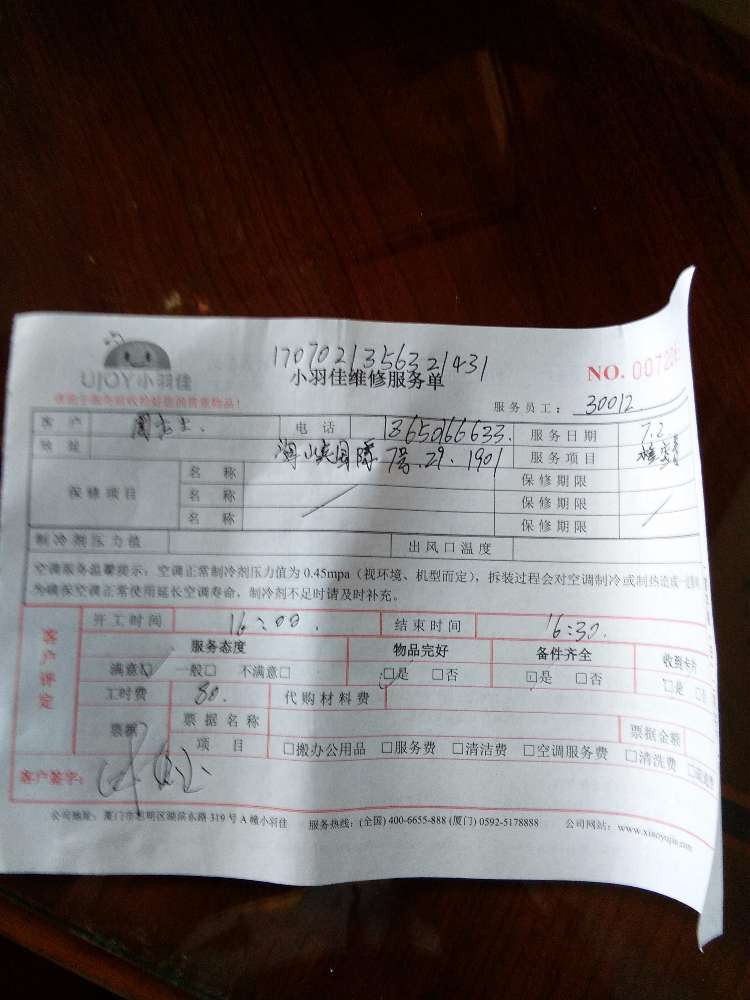 UJOY小羽佳
1707021356321431
小羽佳维修服务单
NO. 00720
服务员工： 30012
客 户 电 话 服务日期 7.2
地 址 海峡国际 7号.29.1901 服务项目
保修项目 名 称 保修期限
名 称 保修期限
名 称 保修期限
制冷剂压力值 出风口温度
空调服务温馨提示：空调正常制冷剂压力值为 0.45mpa（视环境、机型而定），拆装过程会对空调制冷或制热造成一定
为确保空调正常使用延长空调寿命，制冷剂不足时请及时补充。
客户评定
开工时间 16:00. 结束时间 16:30.
服务态度 物品完好 备件齐全 收到卡
满意☑ 一般□ 不满意□ ☑是 □否 ☑是 □否 □是
工时费 80. 代购材料费
票据 票据名称 票据金额
项 目 □搬办公用品 □服务费 □清洁费 □空调服务费 □清洗费
客户签字：
公司地址：厦门市思明区湖滨东路 319 号 A 幢小羽佳 服务热线：(全国) 400-6655-888 (厦门) 0592-5178888 公司网站：www.xiaoyujia.com